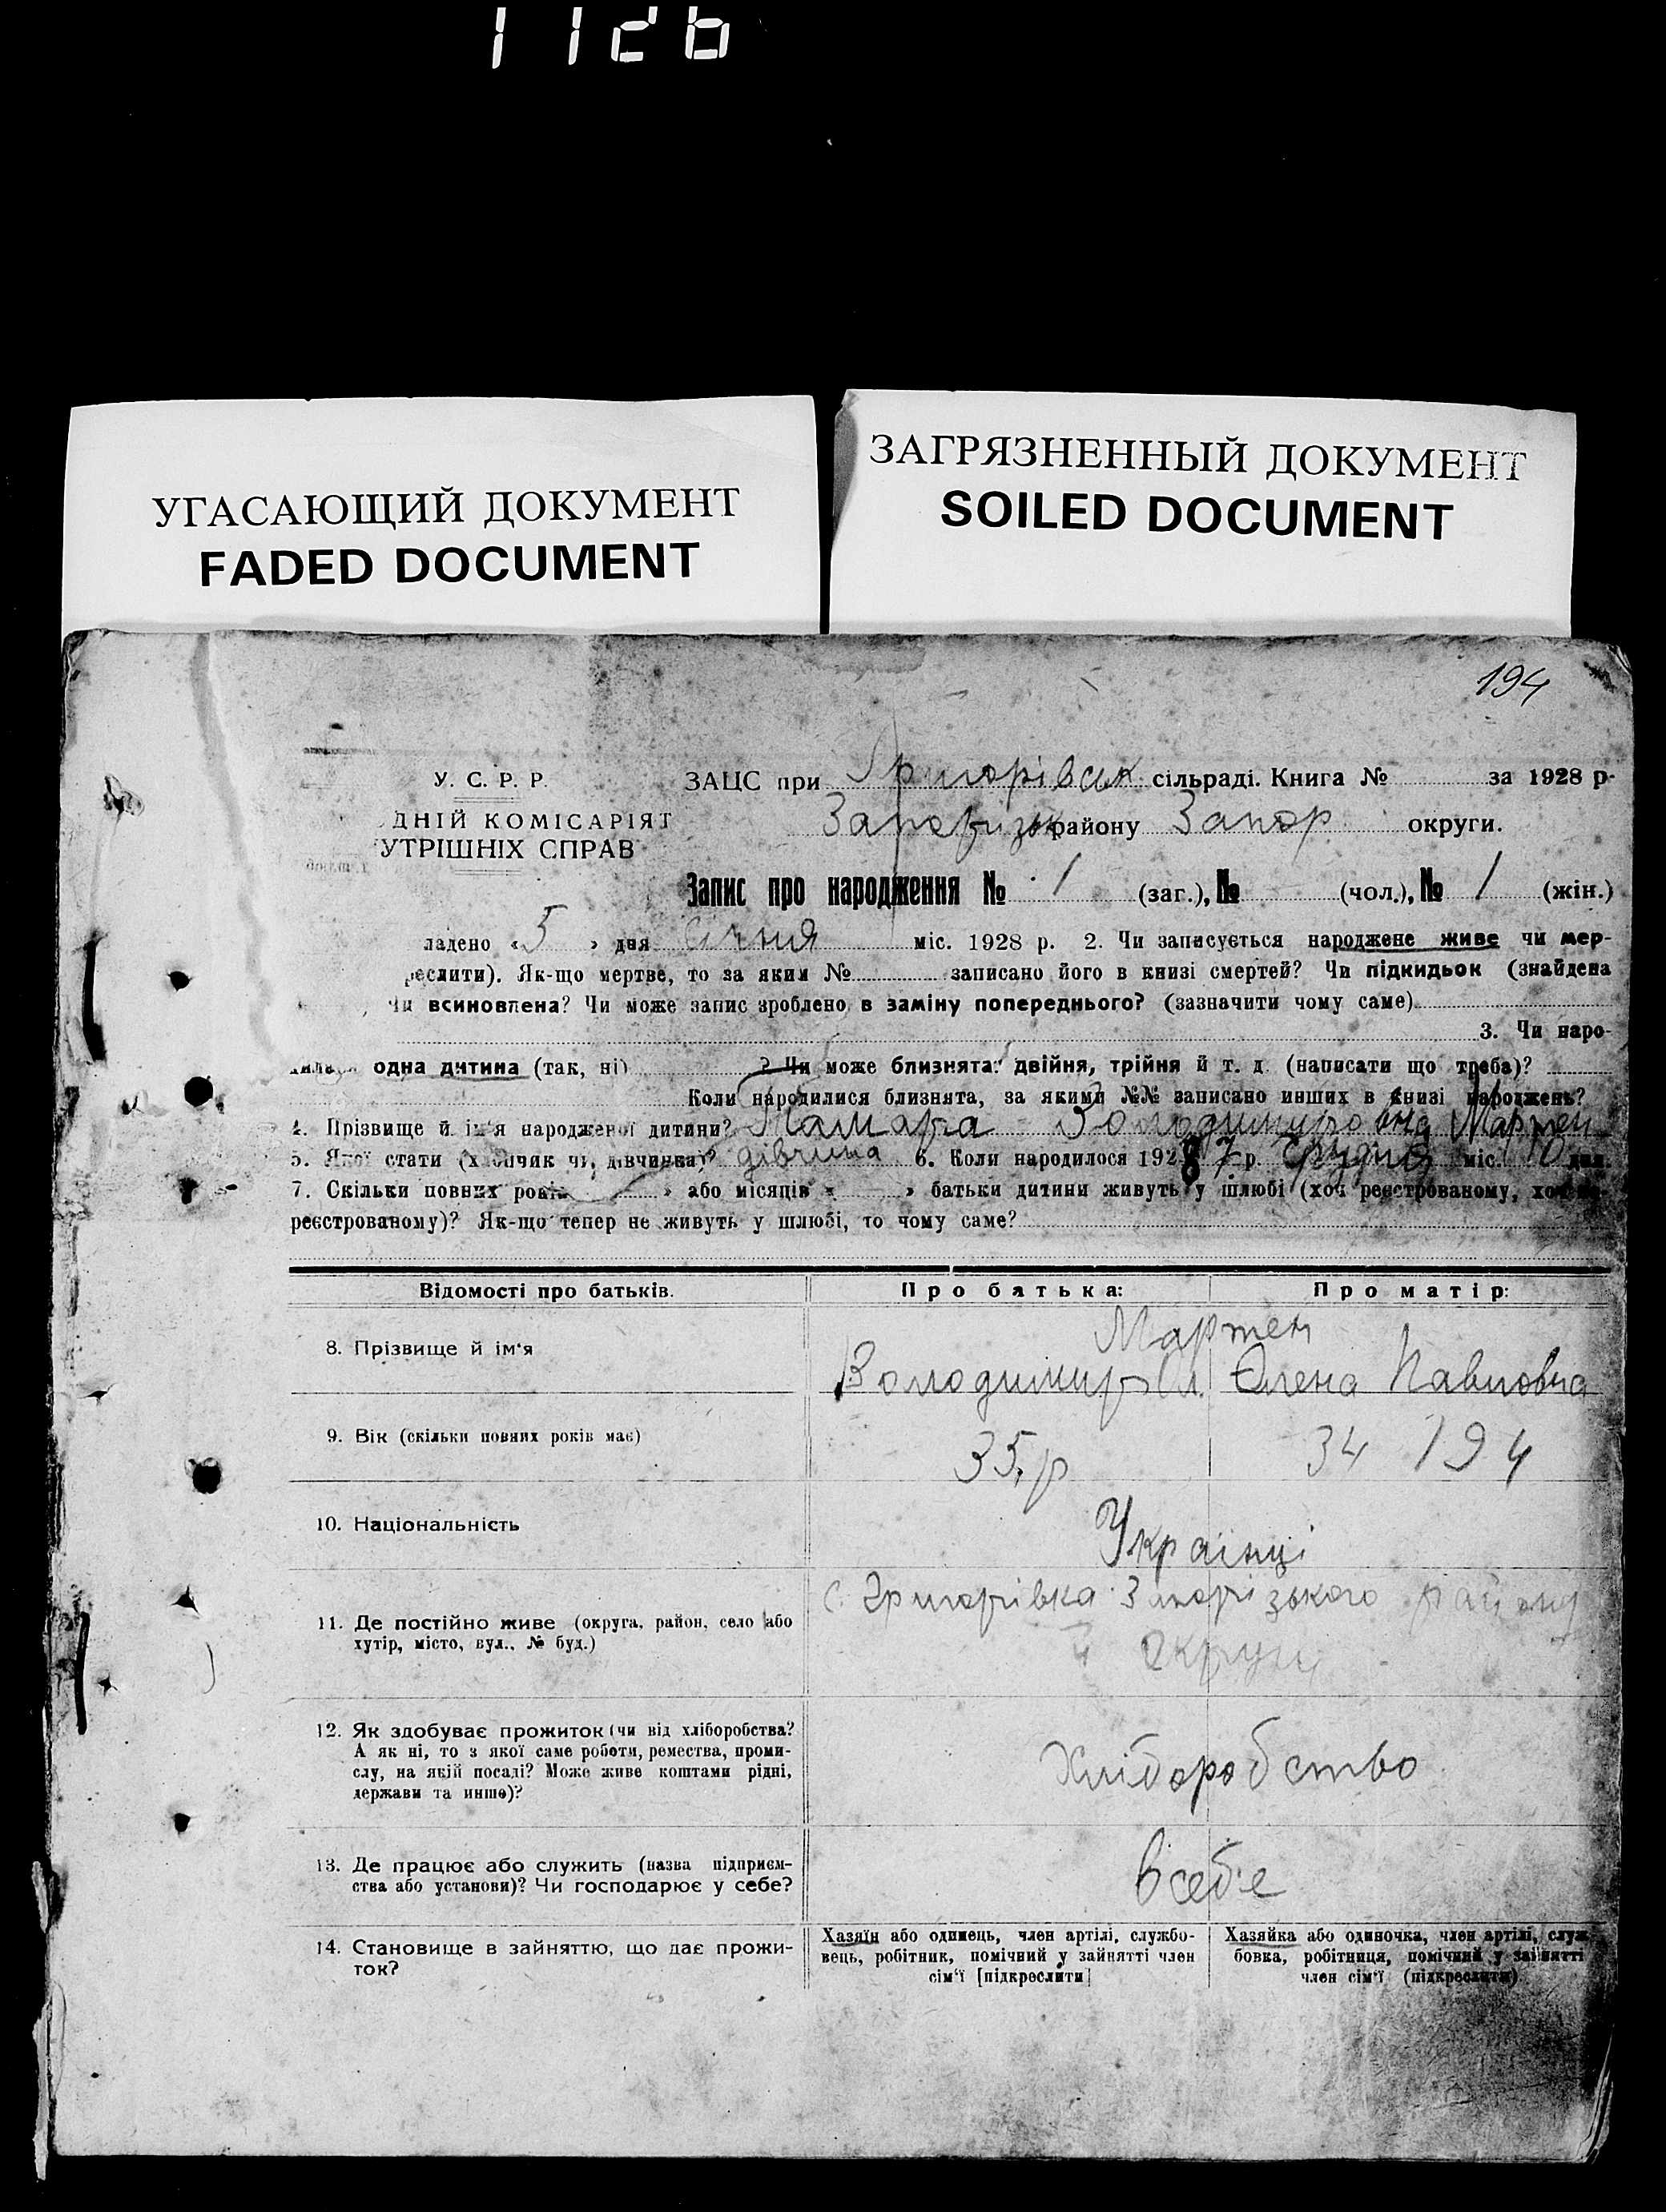 1126
УГАСАЮЩИЙ ДОКУМЕНТ
FADED DOCUMENT
ЗАГРЯЗНЕННЫЙ ДОКУМЕНТ
SOILED DOCUMENT
194
У. С. Р. Р.
ДНІЙ КОМІСАРІЯТ
УТРІШНІХ СПРАВ
ЗАЦС при Григорівськ сільраді. Книга № за 1928 р.
Запорізьк району Запор округи.
Запис про народження № 1 (заг.), № - (чол.), № 1 (жін.)
ладено «5» дня січня міс. 1928 р. 2. Чи записується народжене живе чи мер-
реслити). Як-що мертве, то за яким № записано його в книзі смертей? Чи підкидьок (знайдена
Чи всиновлена? Чи може запис зроблено в заміну попереднього? (зазначити чому саме)
3. Чи наро-
одна дитина (так, ні) ? Чи може близнята: двійня, трійня й т. д. (написати що треба)?
Коли народилися близнята, за якими №№ записано инших в книзі народжень?
4. Прізвище й ім'я народженої дитини? Тамара Володимировна Мартен
5. Якої стати (хлопчик чи, дівчинка)? дівчина 6. Коли народилося 1927 р. Грудня міс. 10 дня.
7. Скільки повних років » або місяців « » батьки дитини живуть у шлюбі (хоч реєстрованому, хоч не-
реєстрованому)? Як-що тепер не живуть у шлюбі, то чому саме?
Відомості про батьків. Про батька: Про матір:
Мартен
8. Прізвище й ім'я Володимир Ол. Олена Павловна
9. Вік (скільки повних років має) 35 р 34 194
10. Національність Українці
11. Де постійно живе (округа, район, село або с. Григорівка Запорізького району
хутір, місто, вул., № буд.) й округи
12. Як здобуває прожиток (чи від хліборобства?
А як ні, то з якої саме роботи, ремества, проми-
слу, на якій посаді? Може живе коштами рідні,
держави та инше)?
Хліборобство
13. Де працює або служить (назва підприєм-
ства або установи)? Чи господарює у себе?
в себе
14. Становище в зайняттю, що дає прожи-
ток?
Хазяїн або одинець, член артілі, службо-
вець, робітник, помічний у зайнятті член
сім'ї [підкреслити]
Хазяйка або одиночка, член артілі, служ-
бовка, робітниця, помічний у зайнятті
член сім'ї (підкреслити)